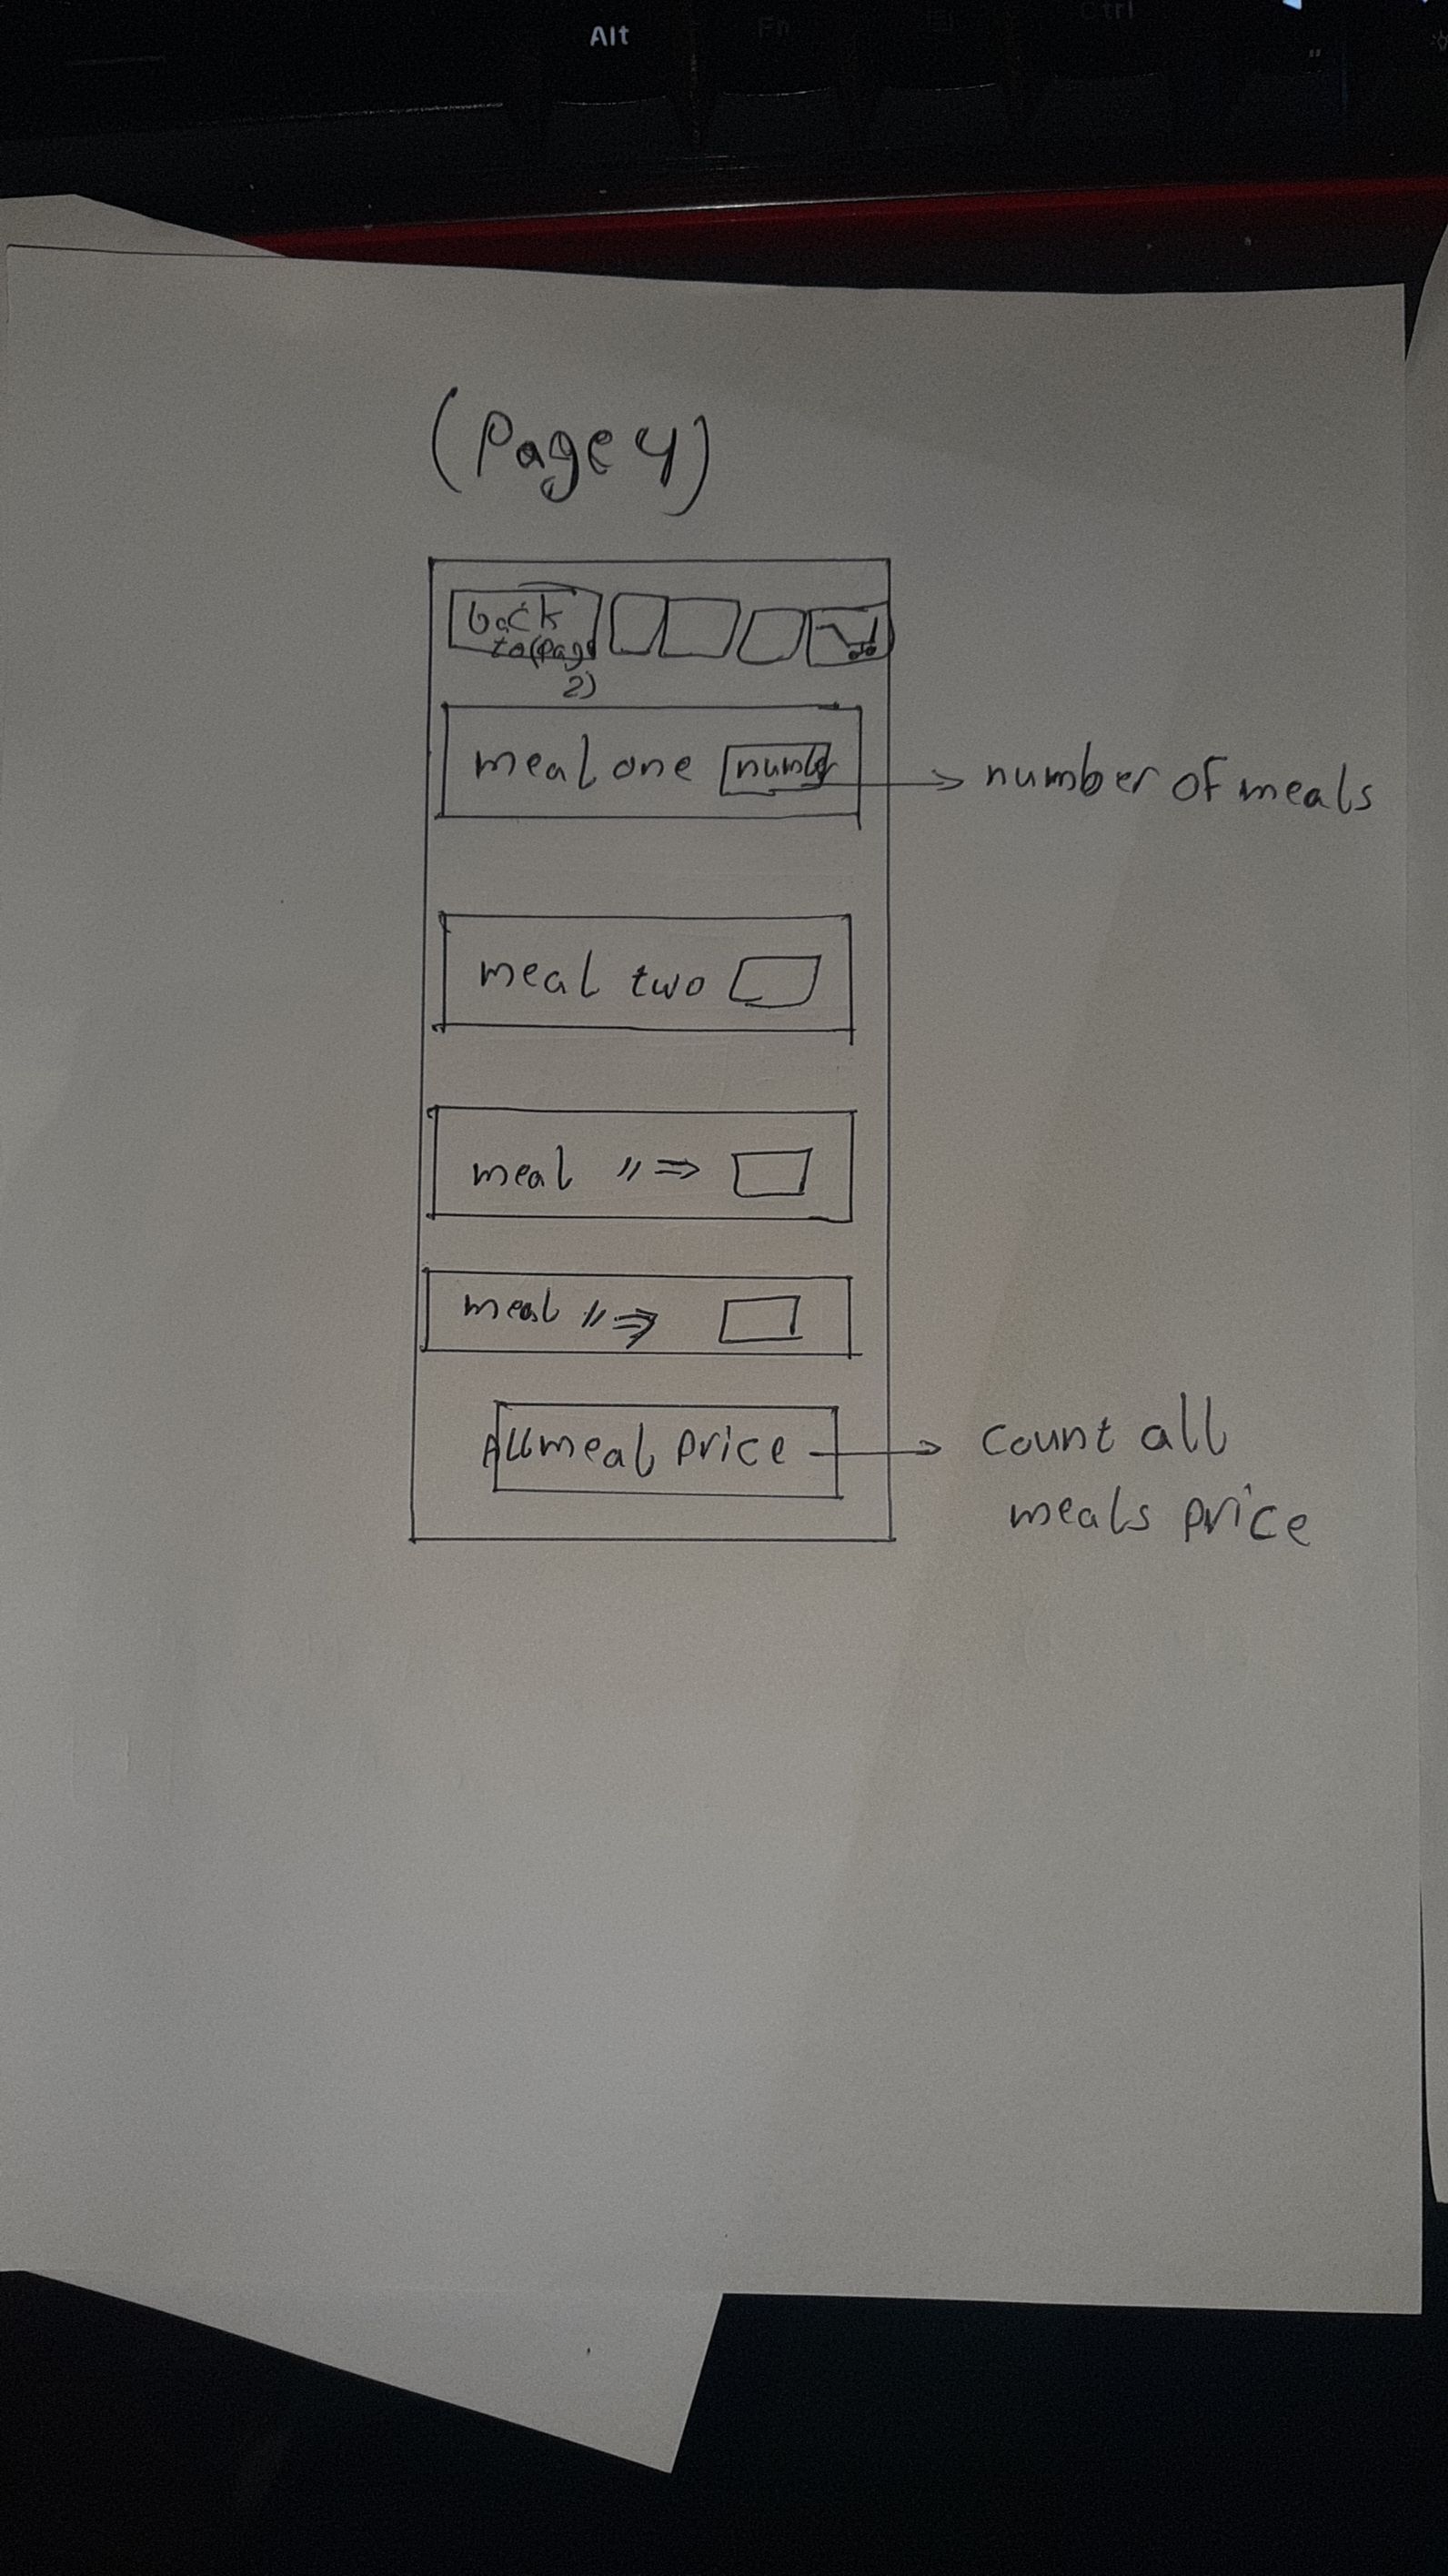 Alt
Fn
Ctrl
(Page 4)
back
to(page
2)
meal one number
number of meals
meal two
meal " ⇒
meal " ⇒
All meal price
count all
meals price